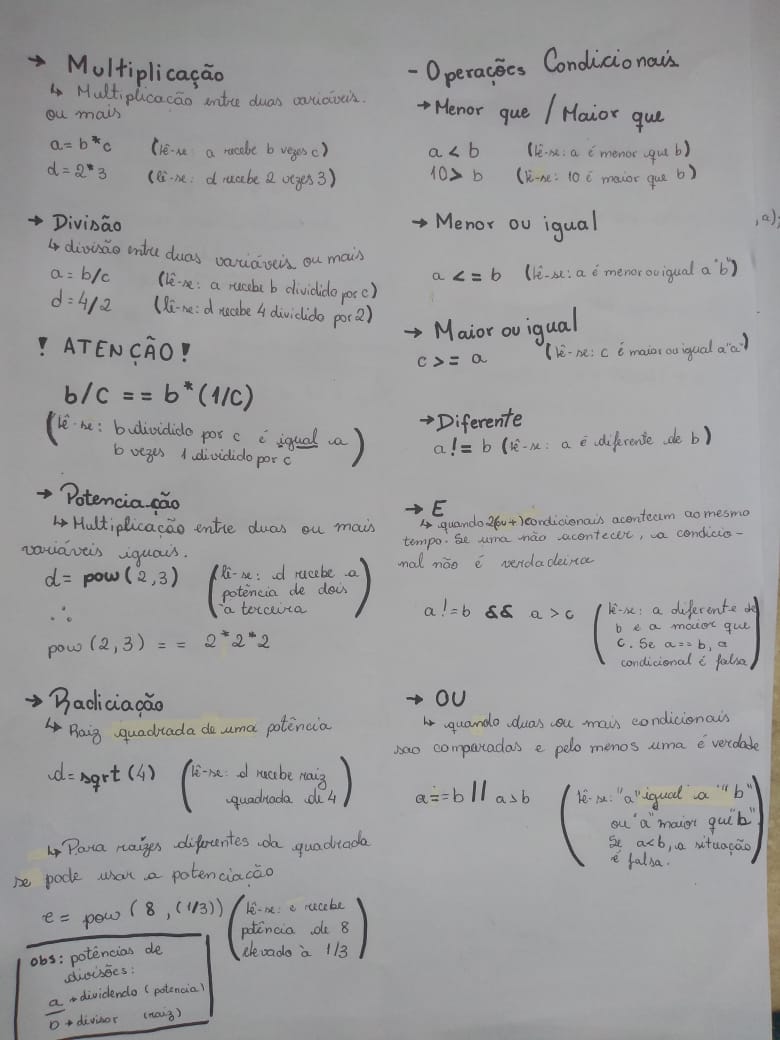 → Multiplicação
↳ Multiplicação entre duas variáveis.
ou mais
a = b*c (lê-se: a recebe b vezes c)
d = 2*3 (lê-se: d recebe 2 vezes 3)
→ Divisão
↳ divisão entre duas variáveis ou mais
a = b/c (lê-se: a recebe b dividido por c)
d = 4/2 (lê-se: d recebe 4 dividido por 2)
! ATENÇÃO!
b/c == b*(1/c)
(lê-se: b dividido por c é igual a
b vezes 1 dividido por c)
→ Potenciação
↳ Multiplicação entre duas ou mais
variáveis iguais.
d = pow(2,3) (lê-se: d recebe a
potência de dois
à terceira)
∴
pow(2,3) == 2*2*2
→ Radiciação
↳ Raiz quadrada de uma potência
d = sqrt(4) (lê-se: d recebe raiz
quadrada de 4)
↳ Para raízes diferentes da quadrada
se pode usar a potenciação
e = pow(8,(1/3)) (lê-se: e recebe
potência de 8
elevado à 1/3)
obs: potências de
divisões:
a → dividendo (potencia)
b → divisor (raiz)
- Operações Condicionais
→ Menor que / Maior que
a < b (lê-se: a é menor que b)
10 > b (lê-se: 10 é maior que b)
→ Menor ou igual
,a);
a <= b (lê-se: a é menor ou igual a "b")
→ Maior ou igual
c >= a (lê-se: c é maior ou igual a "a")
→ Diferente
a != b (lê-se: a é diferente de b)
→ E
↳ quando 2(ou +) condicionais acontecem ao mesmo
tempo. Se uma não acontecer, a condicio-
nal não é verdadeira
a != b && a > c (lê-se: a diferente de
b e a maior que
c. Se a == b, a
condicional é falsa)
→ OU
↳ quando duas ou mais condicionais
sao comparadas e pelo menos uma é verdade
a == b || a > b (lê-se: "a" igual a "b"
ou "a" maior que "b".
Se a<b, a situação
é falsa.)